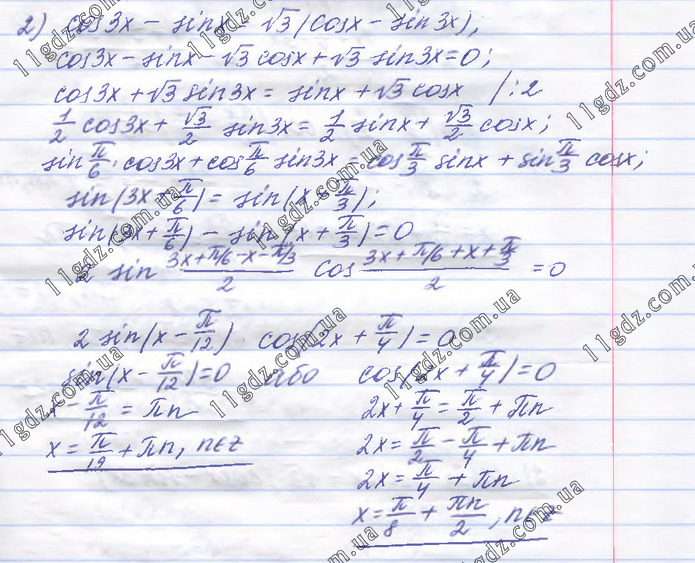 2) cos3x - sinx = √3 (cosx - sin3x);
cos3x - sinx - √3 cosx + √3 sin3x = 0;
cos3x + √3 sin3x = sinx + √3 cosx /:2
1/2 cos3x + √3/2 sin3x = 1/2 sinx + √3/2 cosx;
sin π/6 · cos3x + cos π/6 sin3x = cos π/3 sinx + sin π/3 cosx;
sin(3x + π/6) = sin(x + π/3);
sin(3x + π/6) - sin(x + π/3) = 0
2 sin (3x + π/6 - x - π/3)/2 cos (3x + π/6 + x + π/3)/2 = 0
2 sin(x - π/12) · cos(2x + π/4) = 0
sin(x - π/12) = 0 або cos(2x + π/4) = 0
x - π/12 = πn 2x + π/4 = π/2 + πn
x = π/12 + πn, n∈Z 2x = π/2 - π/4 + πn
2x = π/4 + πn
x = π/8 + πn/2, n∈Z
11gdz.com.ua
11gdz.com.ua
11gdz.com.ua
11gdz.com.ua
11gdz.com.ua
11gdz.com.ua
11gdz.com.ua
11gdz.com.ua
11gdz.com.ua